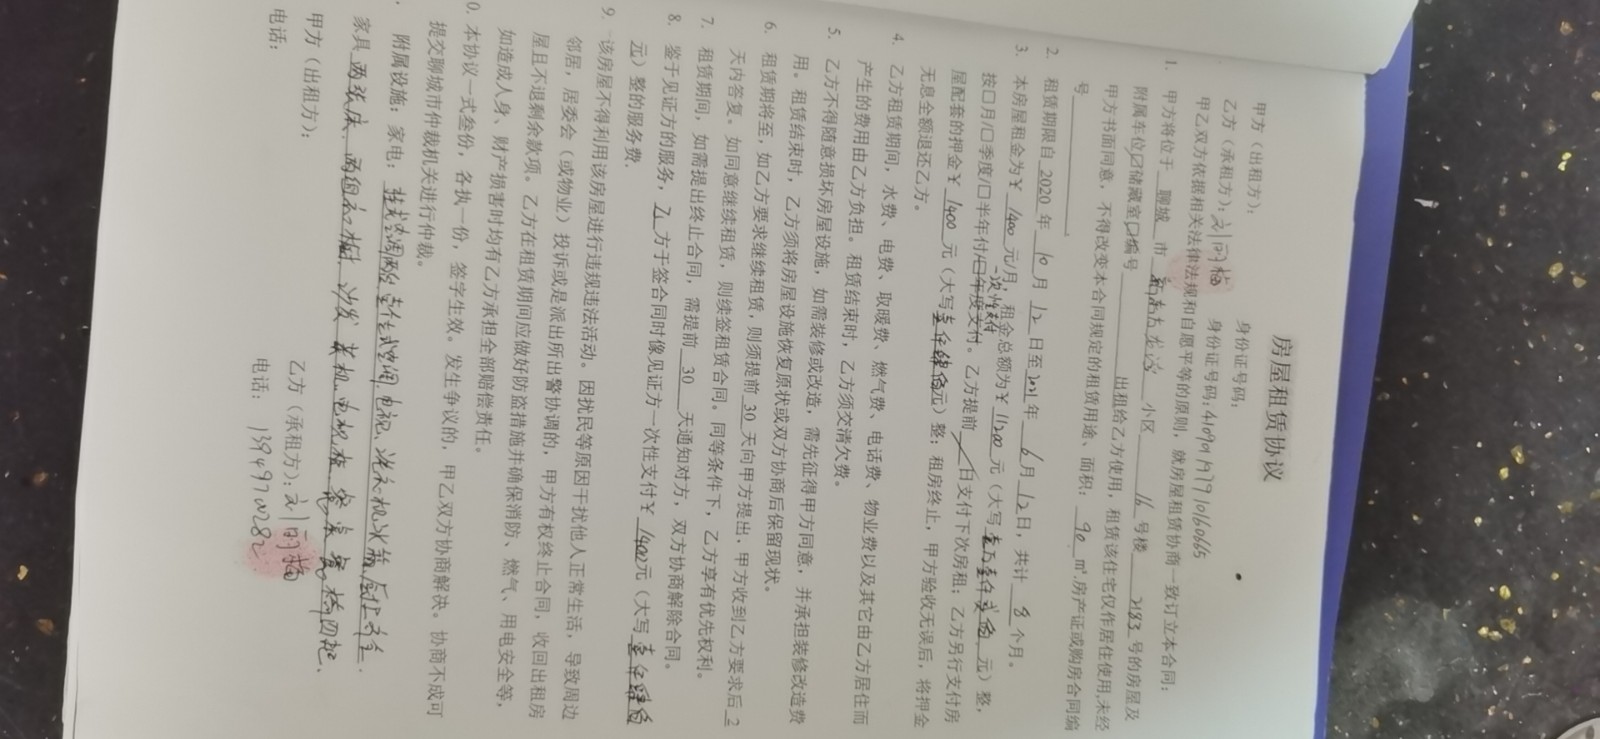 房屋租赁协议
甲方（出租方）： 身份证号码：
乙方（承租方）： 身份证号码：
甲乙双方依据相关法律法规和自愿平等的原则，就房屋租赁协商一致订立本合同：
1. 甲方将位于 聊城 市 小区 16 号楼 号的房屋及
附属车位口储藏室口编号 出租给乙方使用，租赁该住宅仅作居住使用，未经
甲方书面同意，不得改变本合同规定的租赁用途、面积： 90 ㎡，房产证或购房合同编
号
2. 租赁期限自 2020 年 10 月 12 日至2021年 6 月 12 日，共计 8 个月。
3. 本房屋租金为￥ 1400 元/月，租金总额为￥ 11200 元（大写 壹万壹仟贰佰 元）整，
按口月/口季度/口半年付/口年度支付。一次性付 乙方提前 日支付下次房租；乙方另行支付房
屋配套的押金￥ 1400 元（大写壹仟肆佰元）整；租房终止，甲方验收无误后，将押金
无息全额退还乙方。
4. 乙方租赁期间，水费、电费、取暖费、燃气费、电话费、物业费以及其它由乙方居住而
产生的费用由乙方负担。租赁结束时，乙方须交清欠费。
5. 乙方不得随意损坏房屋设施，如需装修或改造，需先征得甲方同意，并承担装修改造费
用。租赁结束时，乙方须将房屋设施恢复原状或双方协商后保留现状。
6. 租赁期将至，如乙方要求继续租赁，则须提前 30 天向甲方提出，甲方收到乙方要求后 2
天内答复。如同意继续租赁，则续签租赁合同。同等条件下，乙方享有优先权利。
7. 租赁期间，如需提出终止合同，需提前 30 天通知对方，双方协商解除合同。
8. 鉴于见证方的服务， 乙 方于签合同时像见证方一次性支付￥ 1400元（大写 壹仟肆佰
元）整的服务费。
9. 该房屋不得利用该房屋进行违规违法活动。因扰民等原因干扰他人正常生活，导致周边
邻居，居委会（或物业）投诉或是派出所出警协调的，甲方有权终止合同，收回出租房
屋且不退剩余款项。乙方在租赁期间应做好防盗措施并确保消防、燃气、用电安全等，
如造成人身、财产损害时均有乙方承担全部赔偿责任。
0. 本协议一式叁份，各执一份，签字生效。发生争议的，甲乙双方协商解决。协商不成可
提交聊城市仲裁机关进行仲裁。
附属设施：家电：挂式空调 电视、洗衣机 冰箱
家具 两张床 两组衣柜 沙发 茶机 电视柜 椅四把。
甲方（出租方）： 乙方（承租方）：
电话： 电话：13949720282